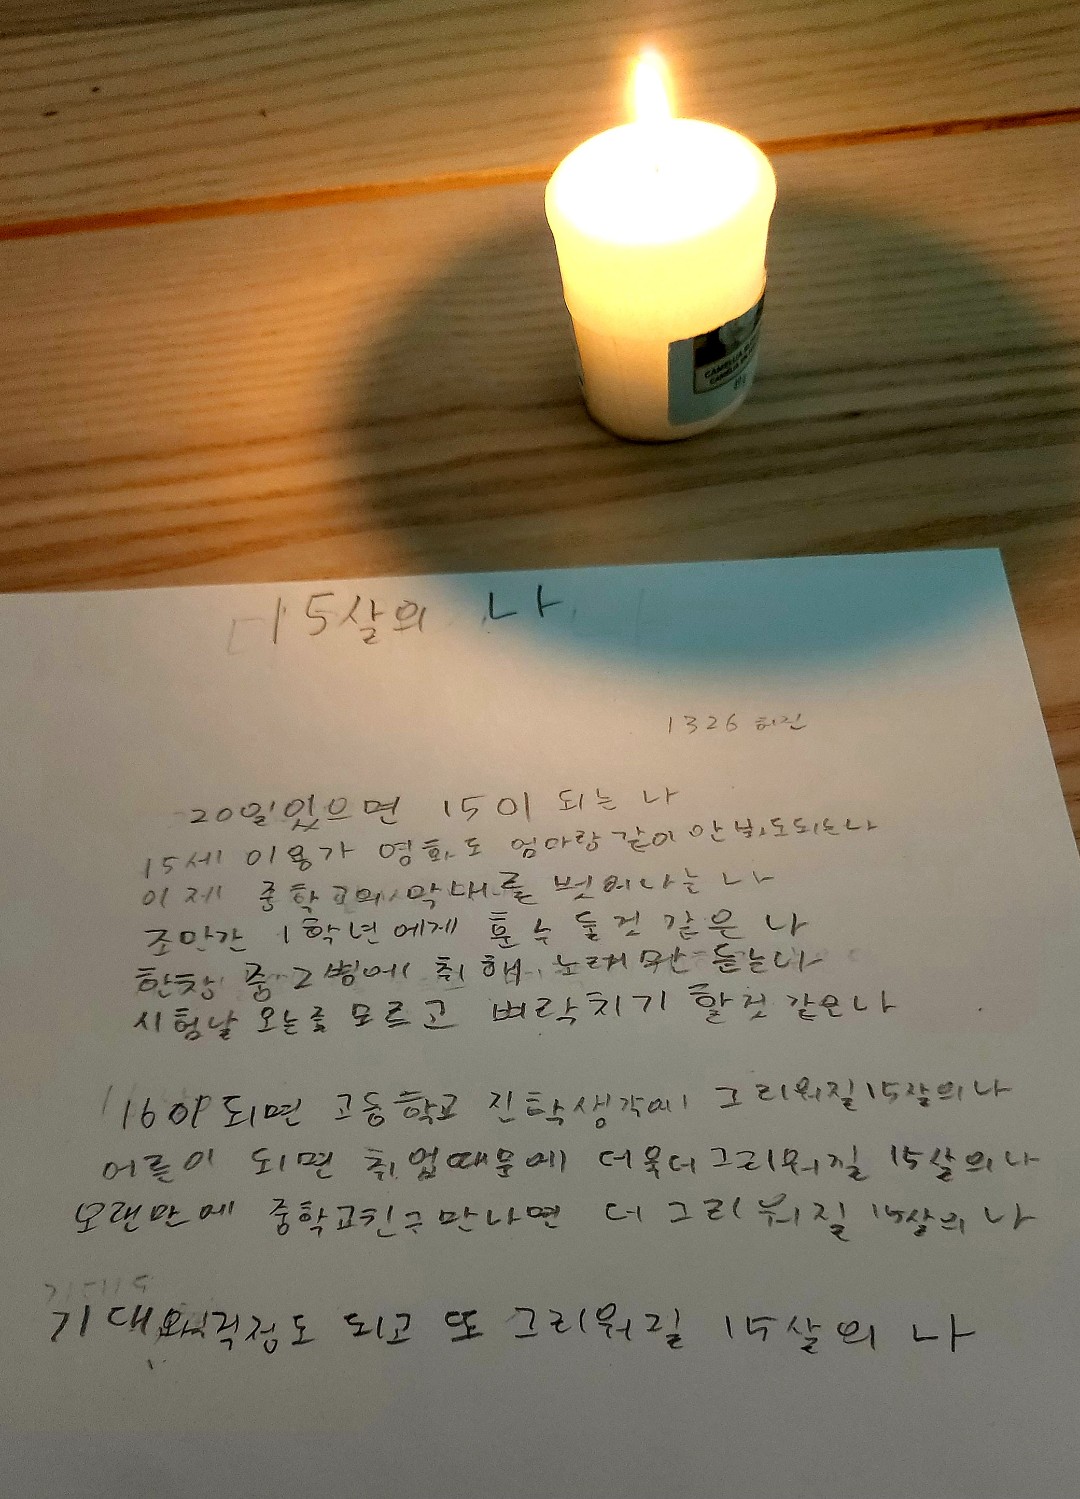 CAMELLIA
15살의 나
1326 허진
20일있으면 15이 되는 나
15세 이용가 영화도 엄마랑 같이 안봐도되는나
이제 중학교의 막내를 벗어나는 나
조만간 1학년에게 훈수 둘것 같은 나
한창 중2병에 취해 노래만 듣는나
시험날 오는줄 모르고 벼락치기 할것 같은나
16이 되면 고등학교 진학생각에 그리워질15살의나
어른이 되면 취업때문에 더욱더그리워질 15살의나
오랜만에 중학교친구만나면 더 그리워질 15살의 나
기대와걱정도 되고 또 그리워질 15살의 나